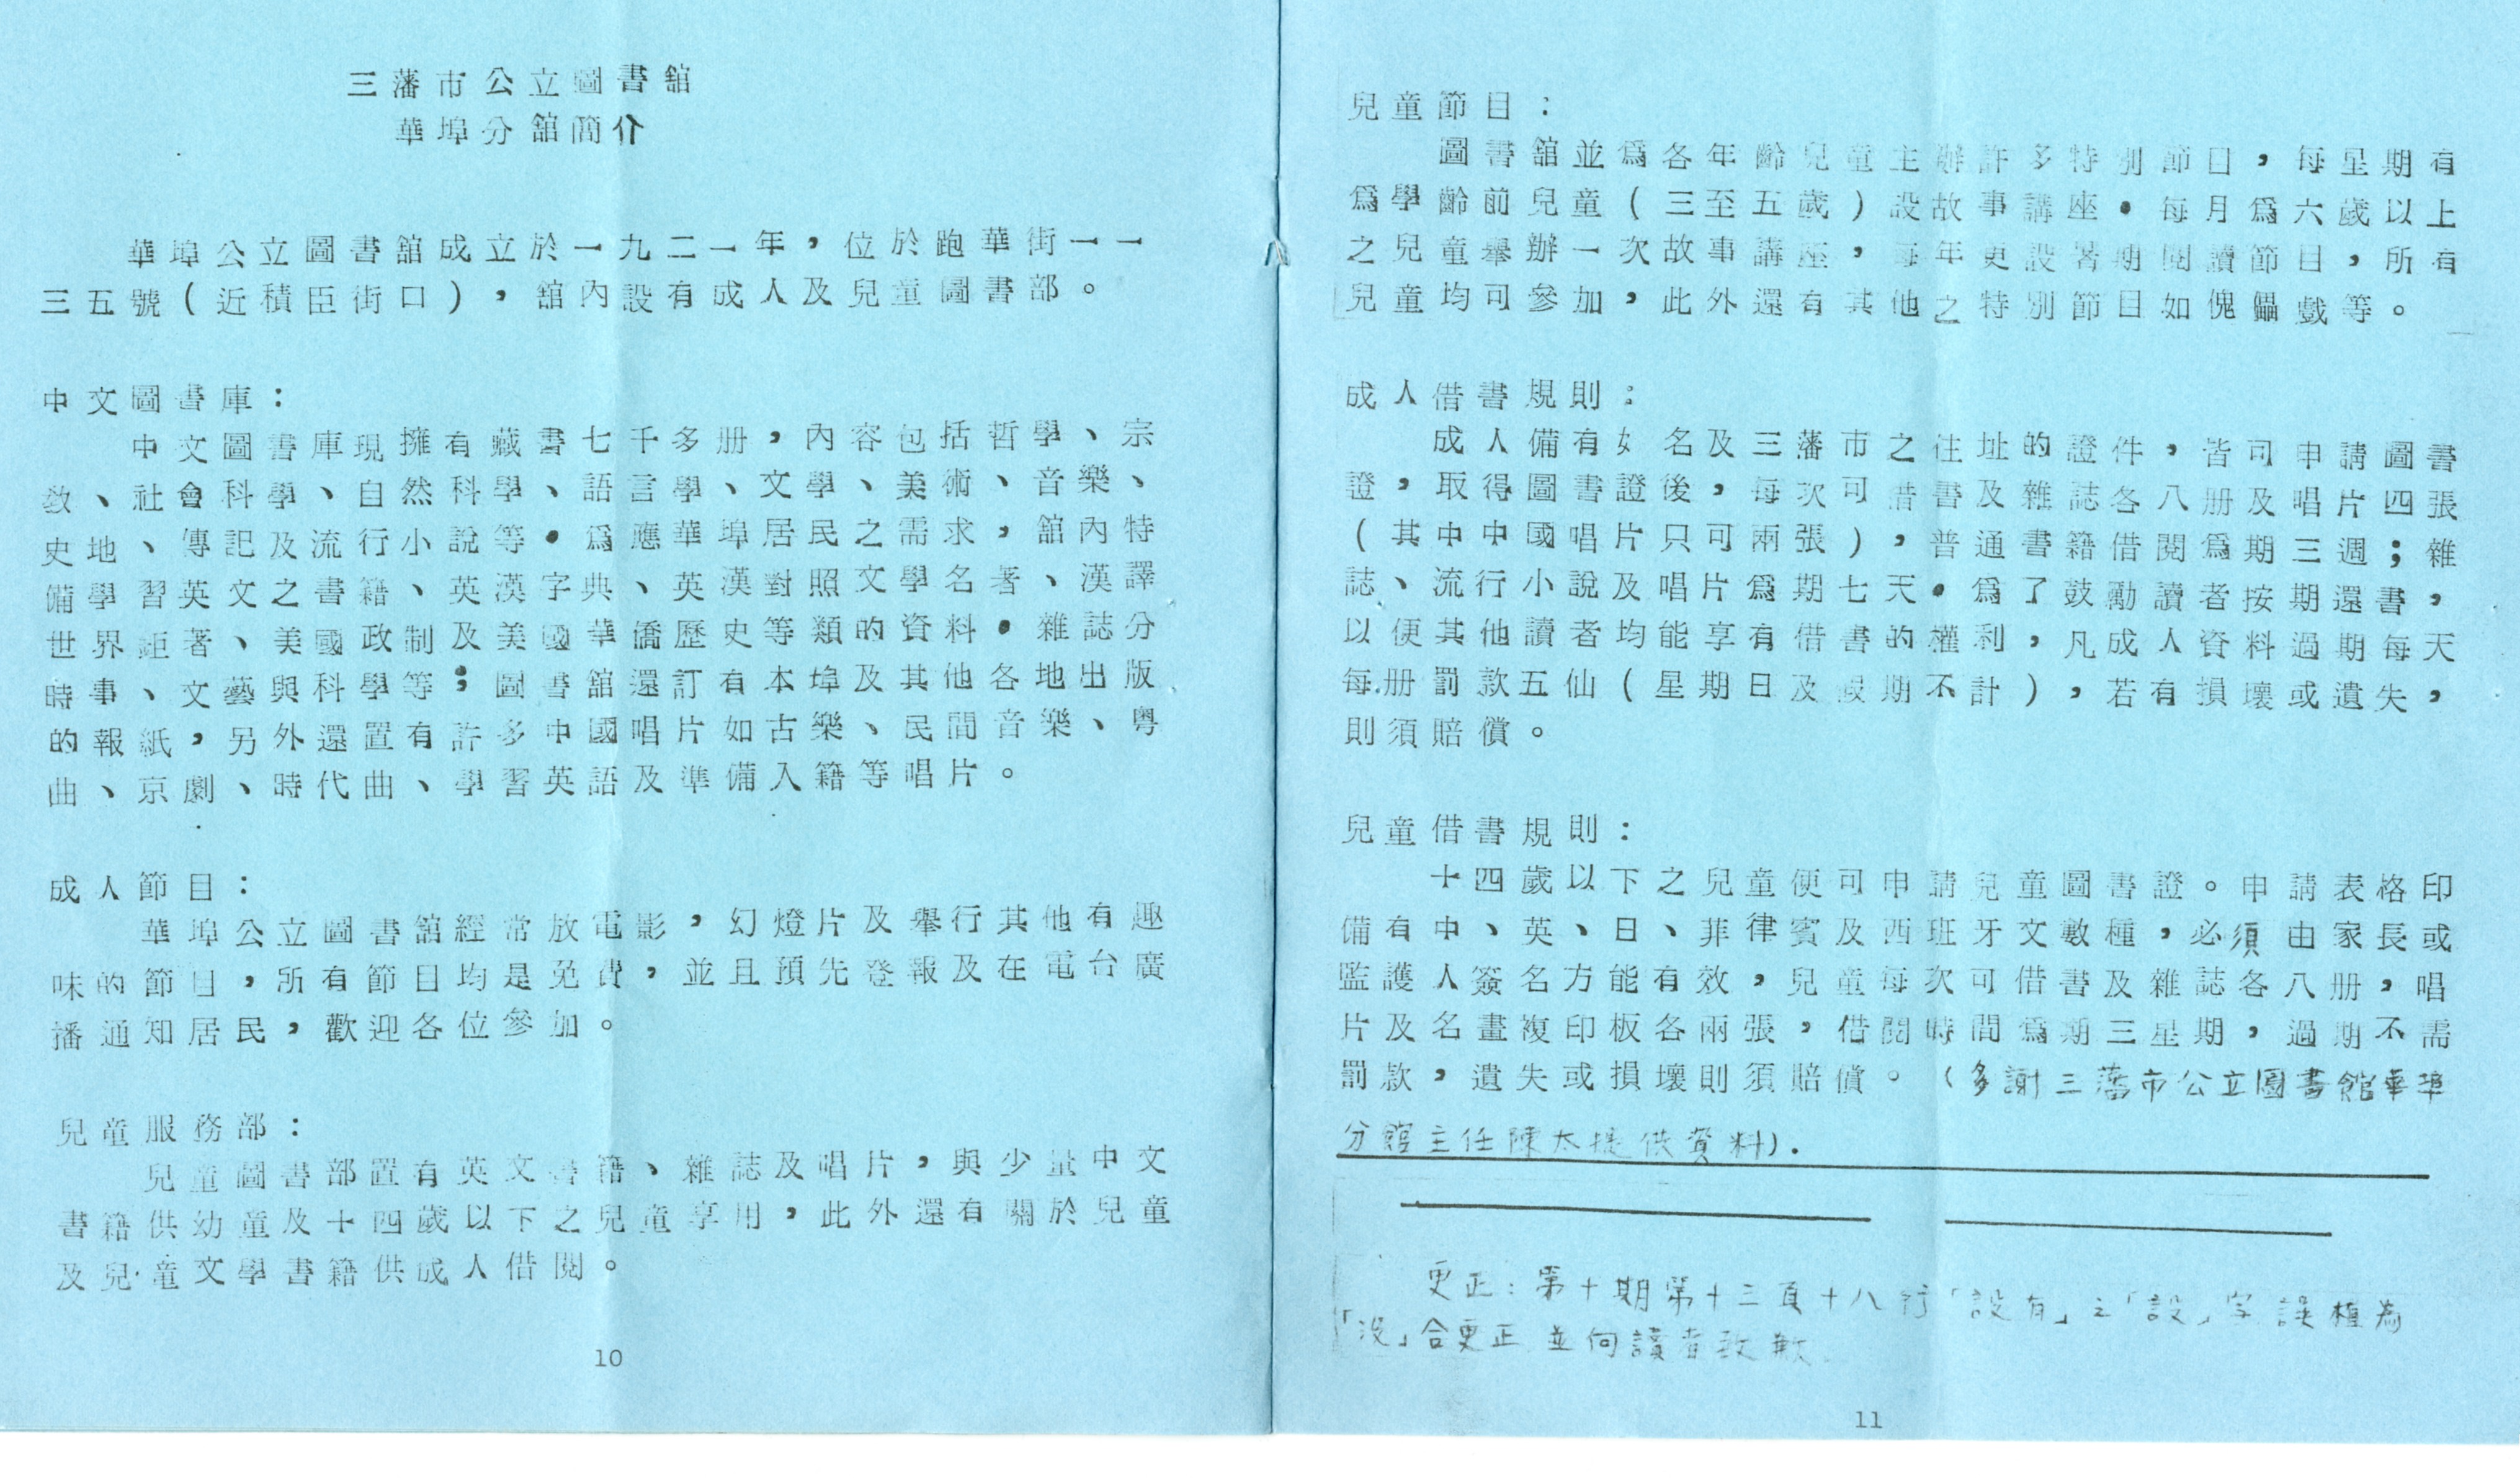 三藩市公立圖書舘
華埠分舘簡介
華埠公立圖書舘成立於一九二一年，位於跑華街一一
三五號(近積臣街口)，舘內設有成人及兒童圖書部。
中文圖書庫：
中文圖書庫現擁有藏書七千多册，內容包括哲學、宗
敎、社會科學、自然科學、語言學、文學、美術、音樂、
史地、傳記及流行小說等。爲應華埠居民之需求，舘內特
備學習英文之書籍、英漢字典、英漢對照文學名著、漢譯
世界鉅著、美國政制及美國華僑歷史等類的資料。雜誌分
時事、文藝與科學等；圖書舘還訂有本埠及其他各地出版
的報紙，另外還置有許多中國唱片如古樂、民間音樂、粤
曲、京劇、時代曲、學習英語及準備入籍等唱片。
成人節目：
華埠公立圖書舘經常放電影，幻燈片及舉行其他有趣
味的節目，所有節目均是免費，並且預先登報及在電台廣
播通知居民，歡迎各位參加。
兒童服務部：
兒童圖書部置有英文書籍、雜誌及唱片，與少量中文
書籍供幼童及十四歲以下之兒童享用，此外還有關於兒童
及兒童文學書籍供成人借閱。
10
兒童節目：
圖書舘並爲各年齡兒童主辦許多特別節目，每星期有
爲學齡前兒童(三至五歲)設故事講座。每月爲六歲以上
之兒童舉辦一次故事講座，每年更設暑期閱讀節目，所有
兒童均可參加，此外還有其他之特別節目如傀儡戲等。
成人借書規則：
成人備有姓名及三藩市之住址的證件，皆可申請圖書
證，取得圖書證後，每次可借書及雜誌各八册及唱片四張
(其中中國唱片只可兩張)，普通書籍借閱爲期三週；雜
誌、流行小說及唱片爲期七天。爲了鼓勵讀者按期還書，
以便其他讀者均能享有借書的權利，凡成人資料過期每天
每册罰款五仙(星期日及假期不計)，若有損壞或遺失，
則須賠償。
兒童借書規則：
十四歲以下之兒童便可申請兒童圖書證。申請表格印
備有中、英、日、菲律賓及西班牙文數種，必須由家長或
監護人簽名方能有效，兒童每次可借書及雜誌各八册，唱
片及名畫複印板各兩張，借閱時間爲期三星期，過期不需
罰款，遺失或損壞則須賠償。(多謝三藩市公立圖書館華埠
分館主任陳太提供資料).
更正：第十期第十三頁十八行「設有」之「設」字誤植為
「没」合更正並向讀者致歉.
11